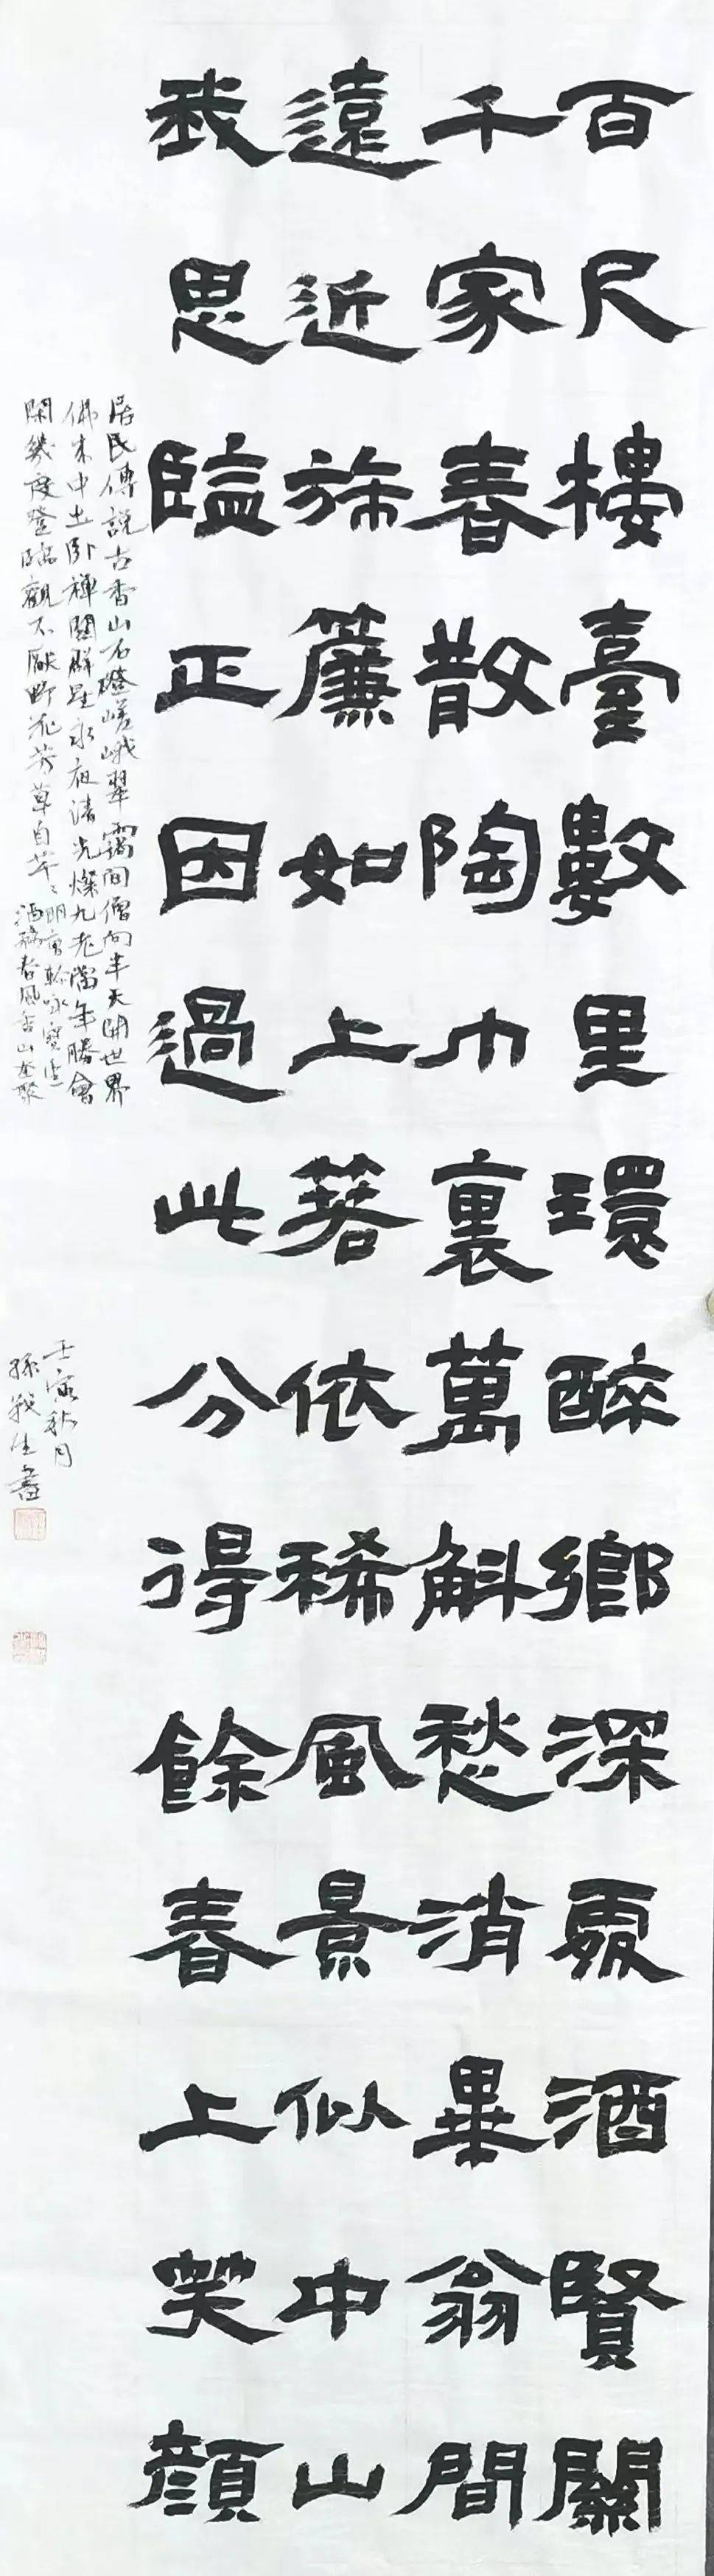 百尺樓臺數里環醉鄉深處酒賢關
千家春散陶巾裏萬斛愁消畢翁間
遠近旆簾如上箬依稀風景似中山
我思臨正因過此分得餘春上笑顏
居民傳說古香山石磴嵯峨翠靄間僧向半天開世界
佛來中土卧禪關群星永夜清光燦九老當年勝會
閑幾度登臨觀不厭野花芳草自芊〻明
酒務春風香山奎聚
壬寅秋月
孫戰生書